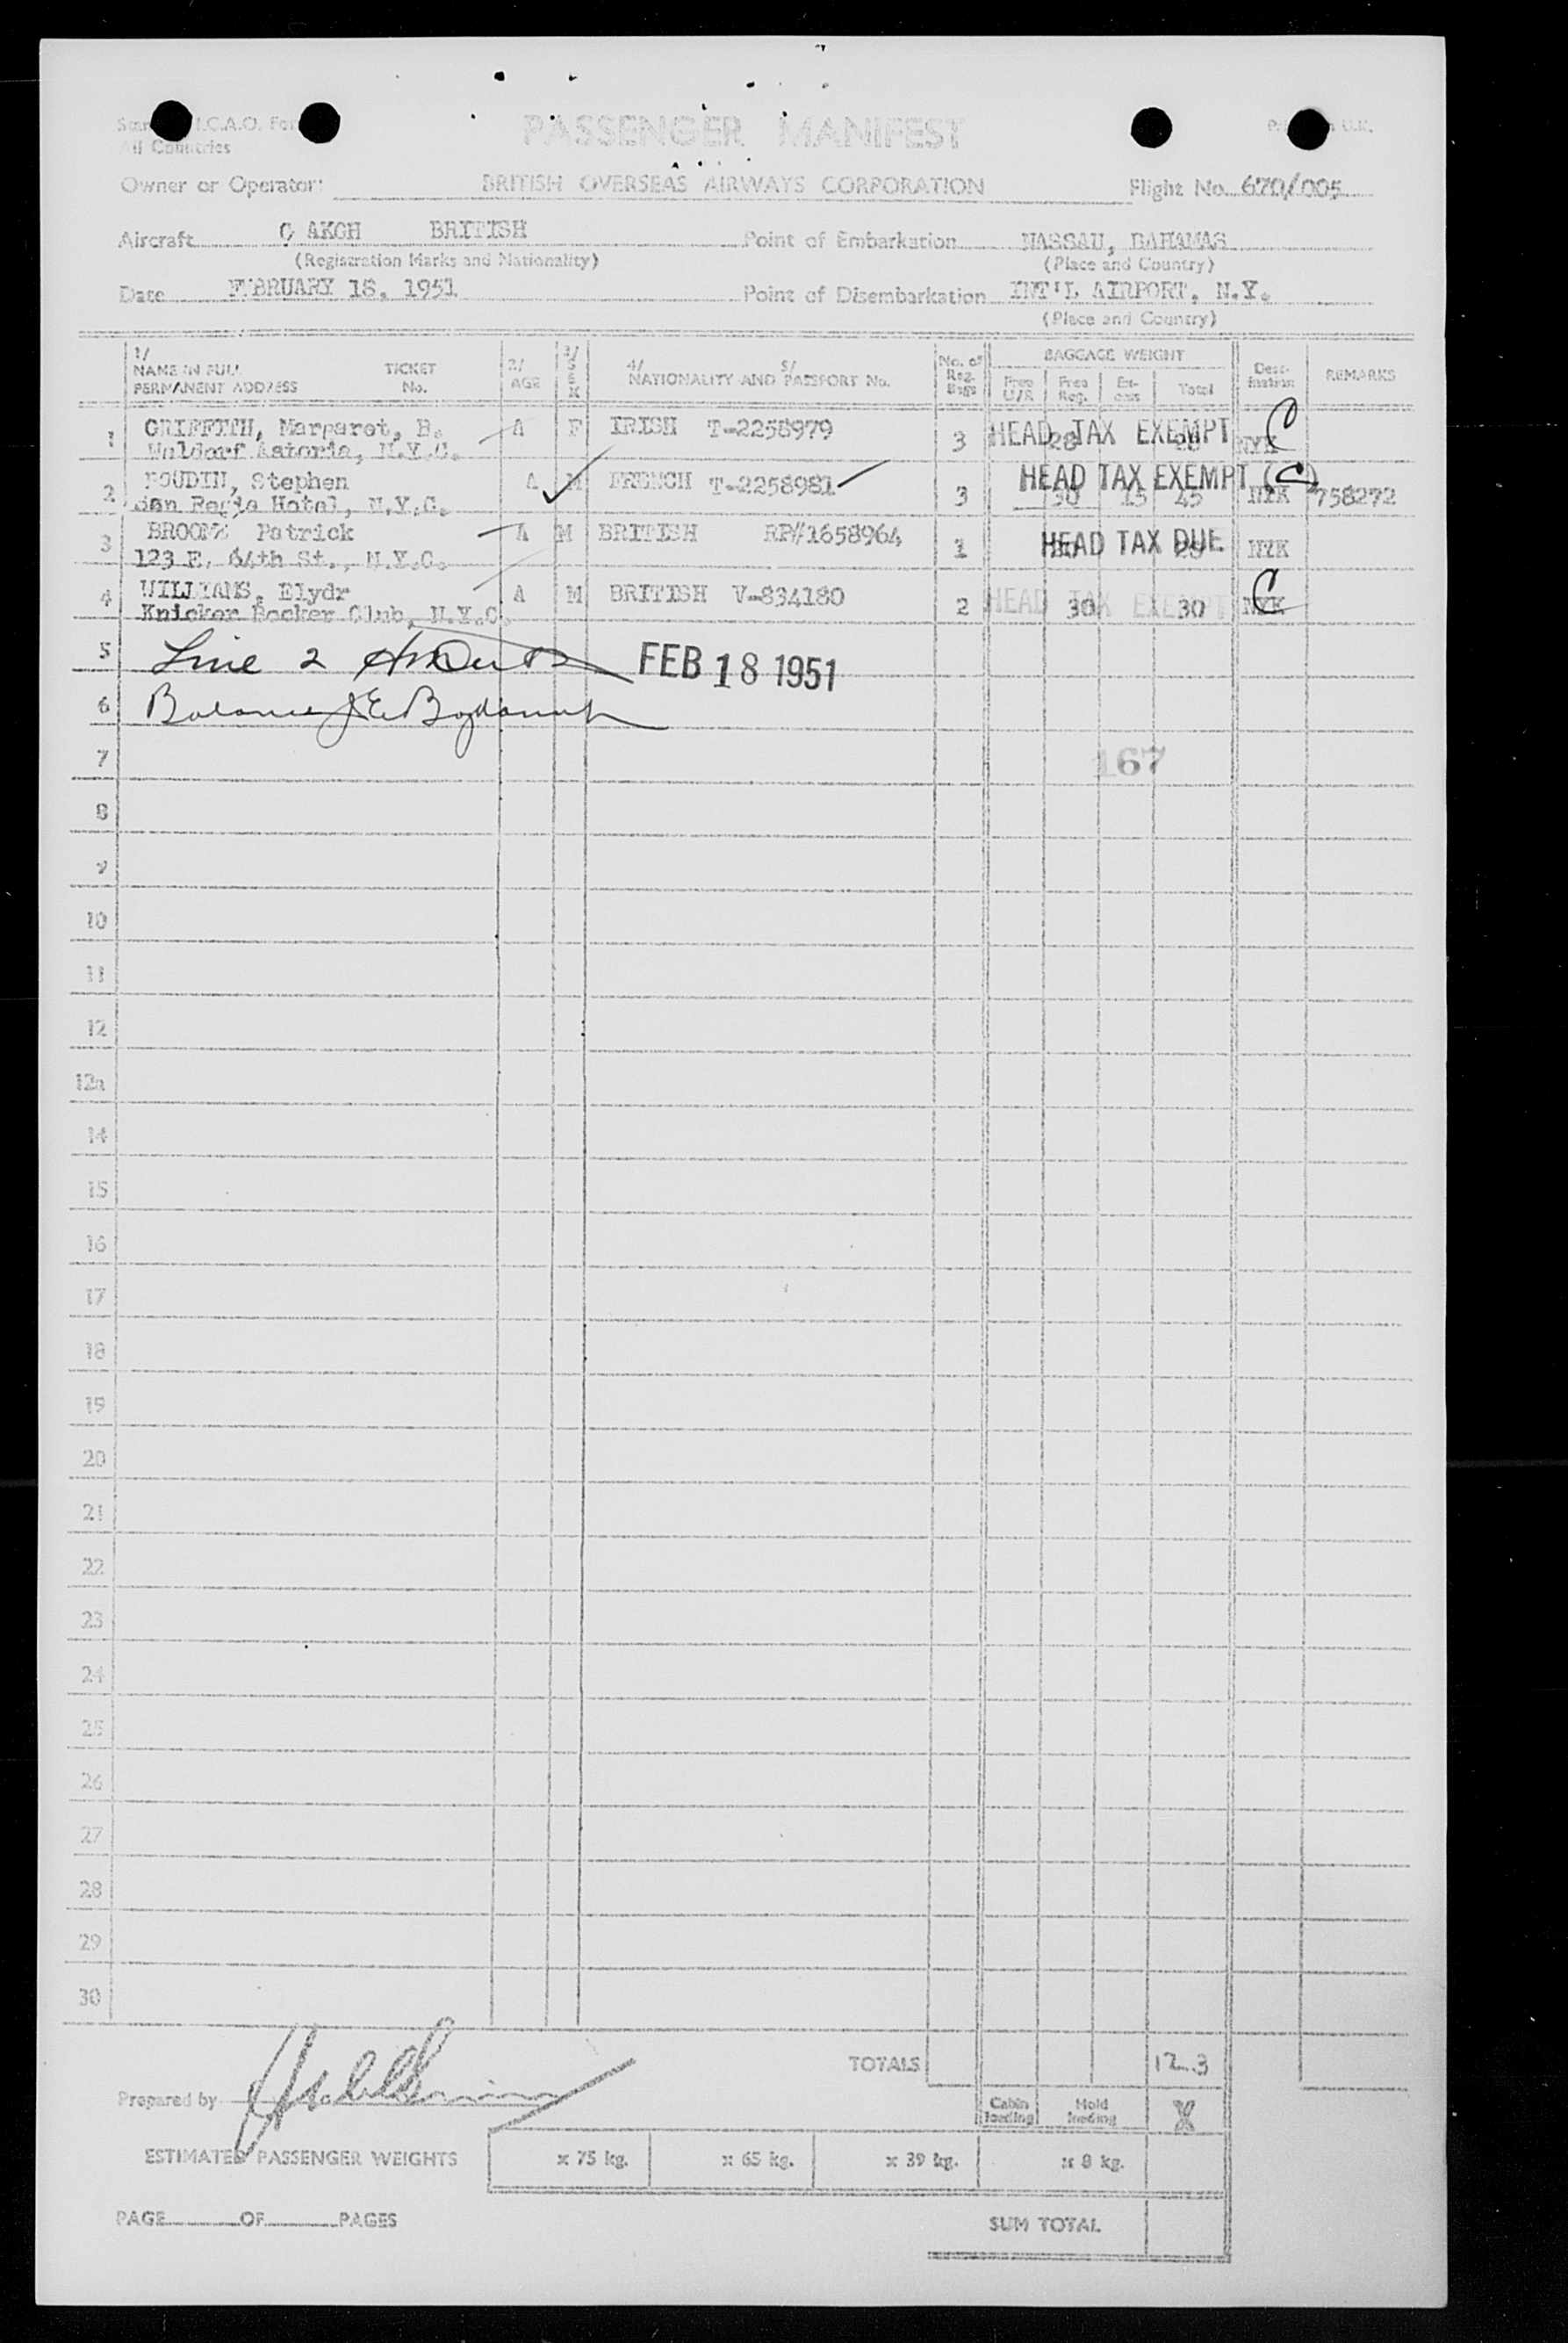 I.C.A.O.
All Countries
PASSENGER MANIFEST
U.K.
Owner or Operator: BRITISH OVERSEAS AIRWAYS CORPORATION Flight No. 670/005
Aircraft G AKGH BRITISH Point of Embarkation NASSAU, BAHAMAS
(Registration Marks and Nationality) (Place and Country)
Date FEBRUARY 18, 1951 Point of Disembarkation INT'L AIRPORT, N.Y.
(Place and Country)
1/ NAME IN FULL PERMANENT ADDRESS TICKET No. 2/ AGE 3/ SEX 4/ 5/ NATIONALITY AND PASSPORT No. No. of Reg. Bags BAGGAGE WEIGHT Free U/R Free Reg. Ex-cess Total Dest-ination REMARKS
1 GRIFFITH, Margaret, B. A F IRISH T-2258979 3 HEAD TAX EXEMPT 28 NYK C
Waldorf Astoria, N.Y.C.
2 Stephen A M FRENCH T-2258981 3 HEAD TAX EXEMPT (C) 30 15 45 NYK 758272
San Regis Hotel, N.Y.C.
3 BROOME Patrick A M BRITISH RP#1658964 1 HEAD TAX DUE NYK
123 E. 64th St., N.Y.C.
4 WILLIAMS, Elydr A M BRITISH V-834180 2 HEAD TAX EXEMPT 30 30 NYK C
Knicker Bocker Club, N.Y.C.
5 Line 2 FEB 18 1951
6 Balance
7 167
8
9
10
11
12
12a
14
15
16
17
18
19
20
21
22
23
24
25
26
27
28
29
30
TOTALS 123
Prepared by
Cabin loading Hold loading X
ESTIMATED PASSENGER WEIGHTS x 75 kg. x 65 kg. x 39 kg. x 8 kg.
PAGE OF PAGES
SUM TOTAL